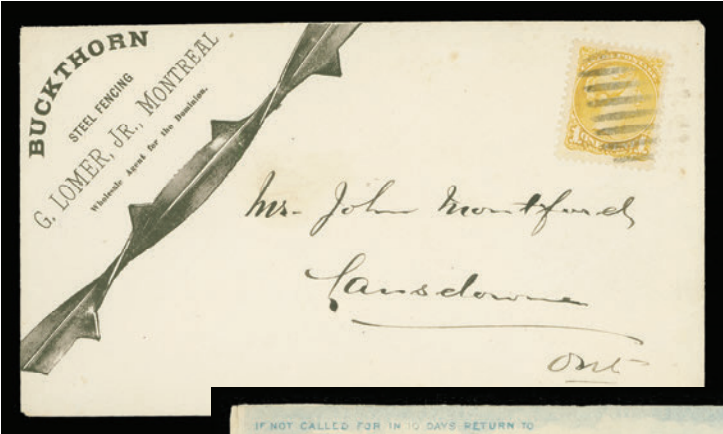 BUCKTHORN
STEEL FENCING
G. LOMER, JR., MONTREAL
Wholesale Agent for the Dominion.
1 ONE CENT 1
Mr. John Montford
Lansdowne
Ont
IF NOT CALLED FOR IN 10 DAYS RETURN TO